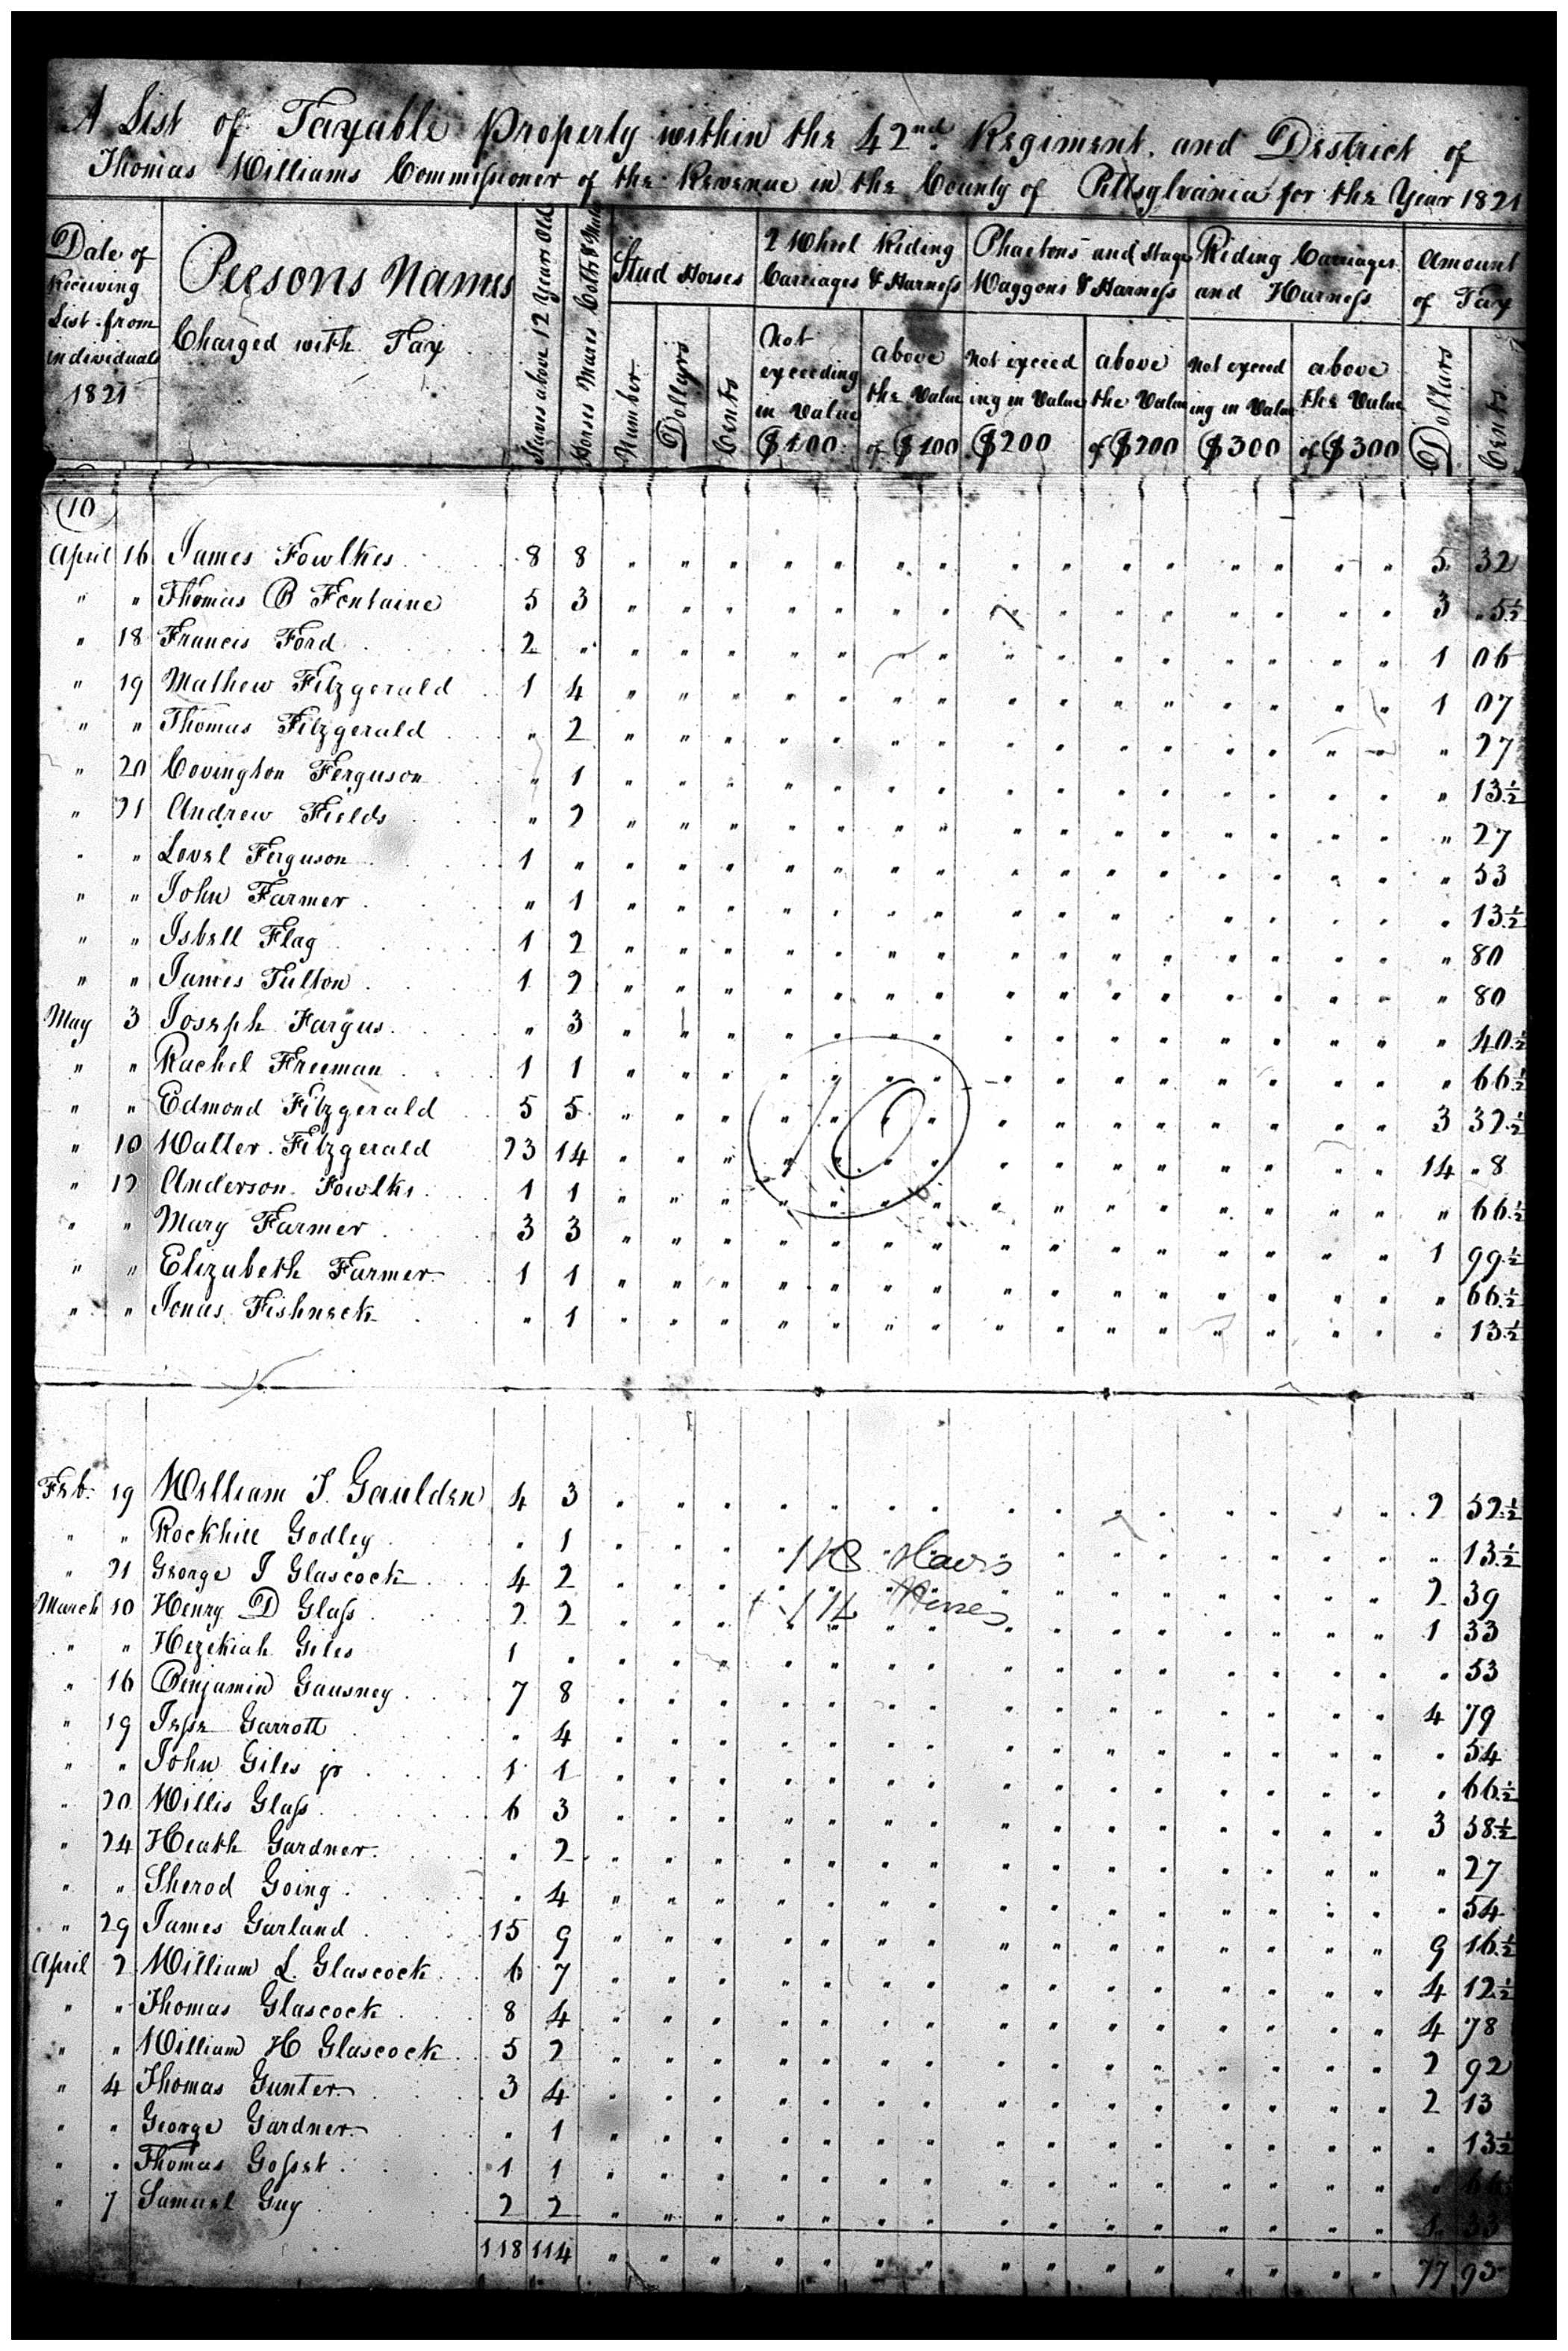 A List of Taxable Property within the 42nd Regiment. and District of
Thomas Williams Commissioner of the Revenue in the County of Pittsylvania for the Year 1821
Date of Receiving List from individuals 1821
Persons Names Charged with Tax
Slaves above 12 Years Old
Horses Mares Colts & Mules
Stud Horses
Number
Dollars
Cents
2 Wheel Riding Carriages & Harness
Not exceeding in Value $100
above the Value of $100
Phaetons and Stage Waggons & Harness
Not exceeding in Value $200
above the Value of $200
Riding Carriages and Harness
Not exceeding in Value $300
above the Value of $300
Amount of Tax
Dollars
Cents
10
April 16 James Fowlkes 8 8 " " " " " " " " " " " " " " " 5 32
" " Thomas B Fontaine 5 3 " " " " " " " " " " " " " " " 3 " 5½
" 18 Francis Ford 2 " " " " " " " " " " " " " " " " 1 06
" 19 Mathew Fitzgerald 1 4 " " " " " " " " " " " " " " " 1 07
" " Thomas Fitzgerald " 2 " " " " " " " " " " " " " " " " 27
" 20 Covington Ferguson " 1 " " " " " " " " " " " " " " " " 13½
" 21 Andrew Fields " 2 " " " " " " " " " " " " " " " " 27
" " Lovel Ferguson 1 " " " " " " " " " " " " " " " " " 53
" " John Farmer " 1 " " " " " " " " " " " " " " " " 13½
" " Isbell Flag 1 2 " " " " " " " " " " " " " " " " 80
" " James Fulton 1 2 " " " " " " " " " " " " " " " " 80
May 3 Joseph Fargus " 3 " " " " " " " " " " " " " " " " 40½
" " Rachel Freeman 1 1 " " " " " " " " " " " " " " " " 66½
" " Edmond Fitzgerald 5 5 " " " " " " " " " " " " " " " 3 32½
10
" 10 Walter Fitzgerald 23 14 " " " " " " " " " " " " " " " 14 " 8
" 12 Anderson Fowlks 1 1 " " " " " " " " " " " " " " " " 66½
" " Mary Farmer 3 3 " " " " " " " " " " " " " " " 1 99½
" " Elizabeth Farmer 1 1 " " " " " " " " " " " " " " " " 66½
" " Jonas Fishneck " 1 " " " " " " " " " " " " " " " " 13½
Feb. 19 William T. Gaulden 4 3 " " " " " " " " " " " " " " " 2 52½
" " Rockhill Godley " 1 " " " " " " " " " " " " " " " " 13½
118 Slaves
" 21 George I Glascock 4 2 " " " " " " " " " " " " " " " 2 39
114 Horses
March 10 Henry D Glass 2 2 " " " " " " " " " " " " " " " 1 33
" " Hezekiah Giles 1 " " " " " " " " " " " " " " " " " 53
" 16 Benjamin Gausney 7 8 " " " " " " " " " " " " " " " 4 79
" 19 Jesse Garrott " 4 " " " " " " " " " " " " " " " " 54
" " John Giles jr 1 1 " " " " " " " " " " " " " " " " 66½
" 20 Willis Glass 6 3 " " " " " " " " " " " " " " " 3 58½
" 24 Heath Gardner " 2 " " " " " " " " " " " " " " " " 27
" " Sherod Going " 4 " " " " " " " " " " " " " " " " 54
" 29 James Garland 15 9 " " " " " " " " " " " " " " " 9 16½
April 2 William L. Glascock 6 7 " " " " " " " " " " " " " " " 4 12½
" " Thomas Glascock 8 4 " " " " " " " " " " " " " " " 4 78
" " William H Glascock 5 2 " " " " " " " " " " " " " " " 2 92
" 4 Thomas Gunter 3 4 " " " " " " " " " " " " " " " 2 13
" " George Gardner " 1 " " " " " " " " " " " " " " " " 13½
" " Thomas Gosset 1 1 " " " " " " " " " " " " " " " " 66
" 7 Samuel Guy 2 2 " " " " " " " " " " " " " " " 1 33
118 114 " " " " " " " " " " " " " " " 77 93